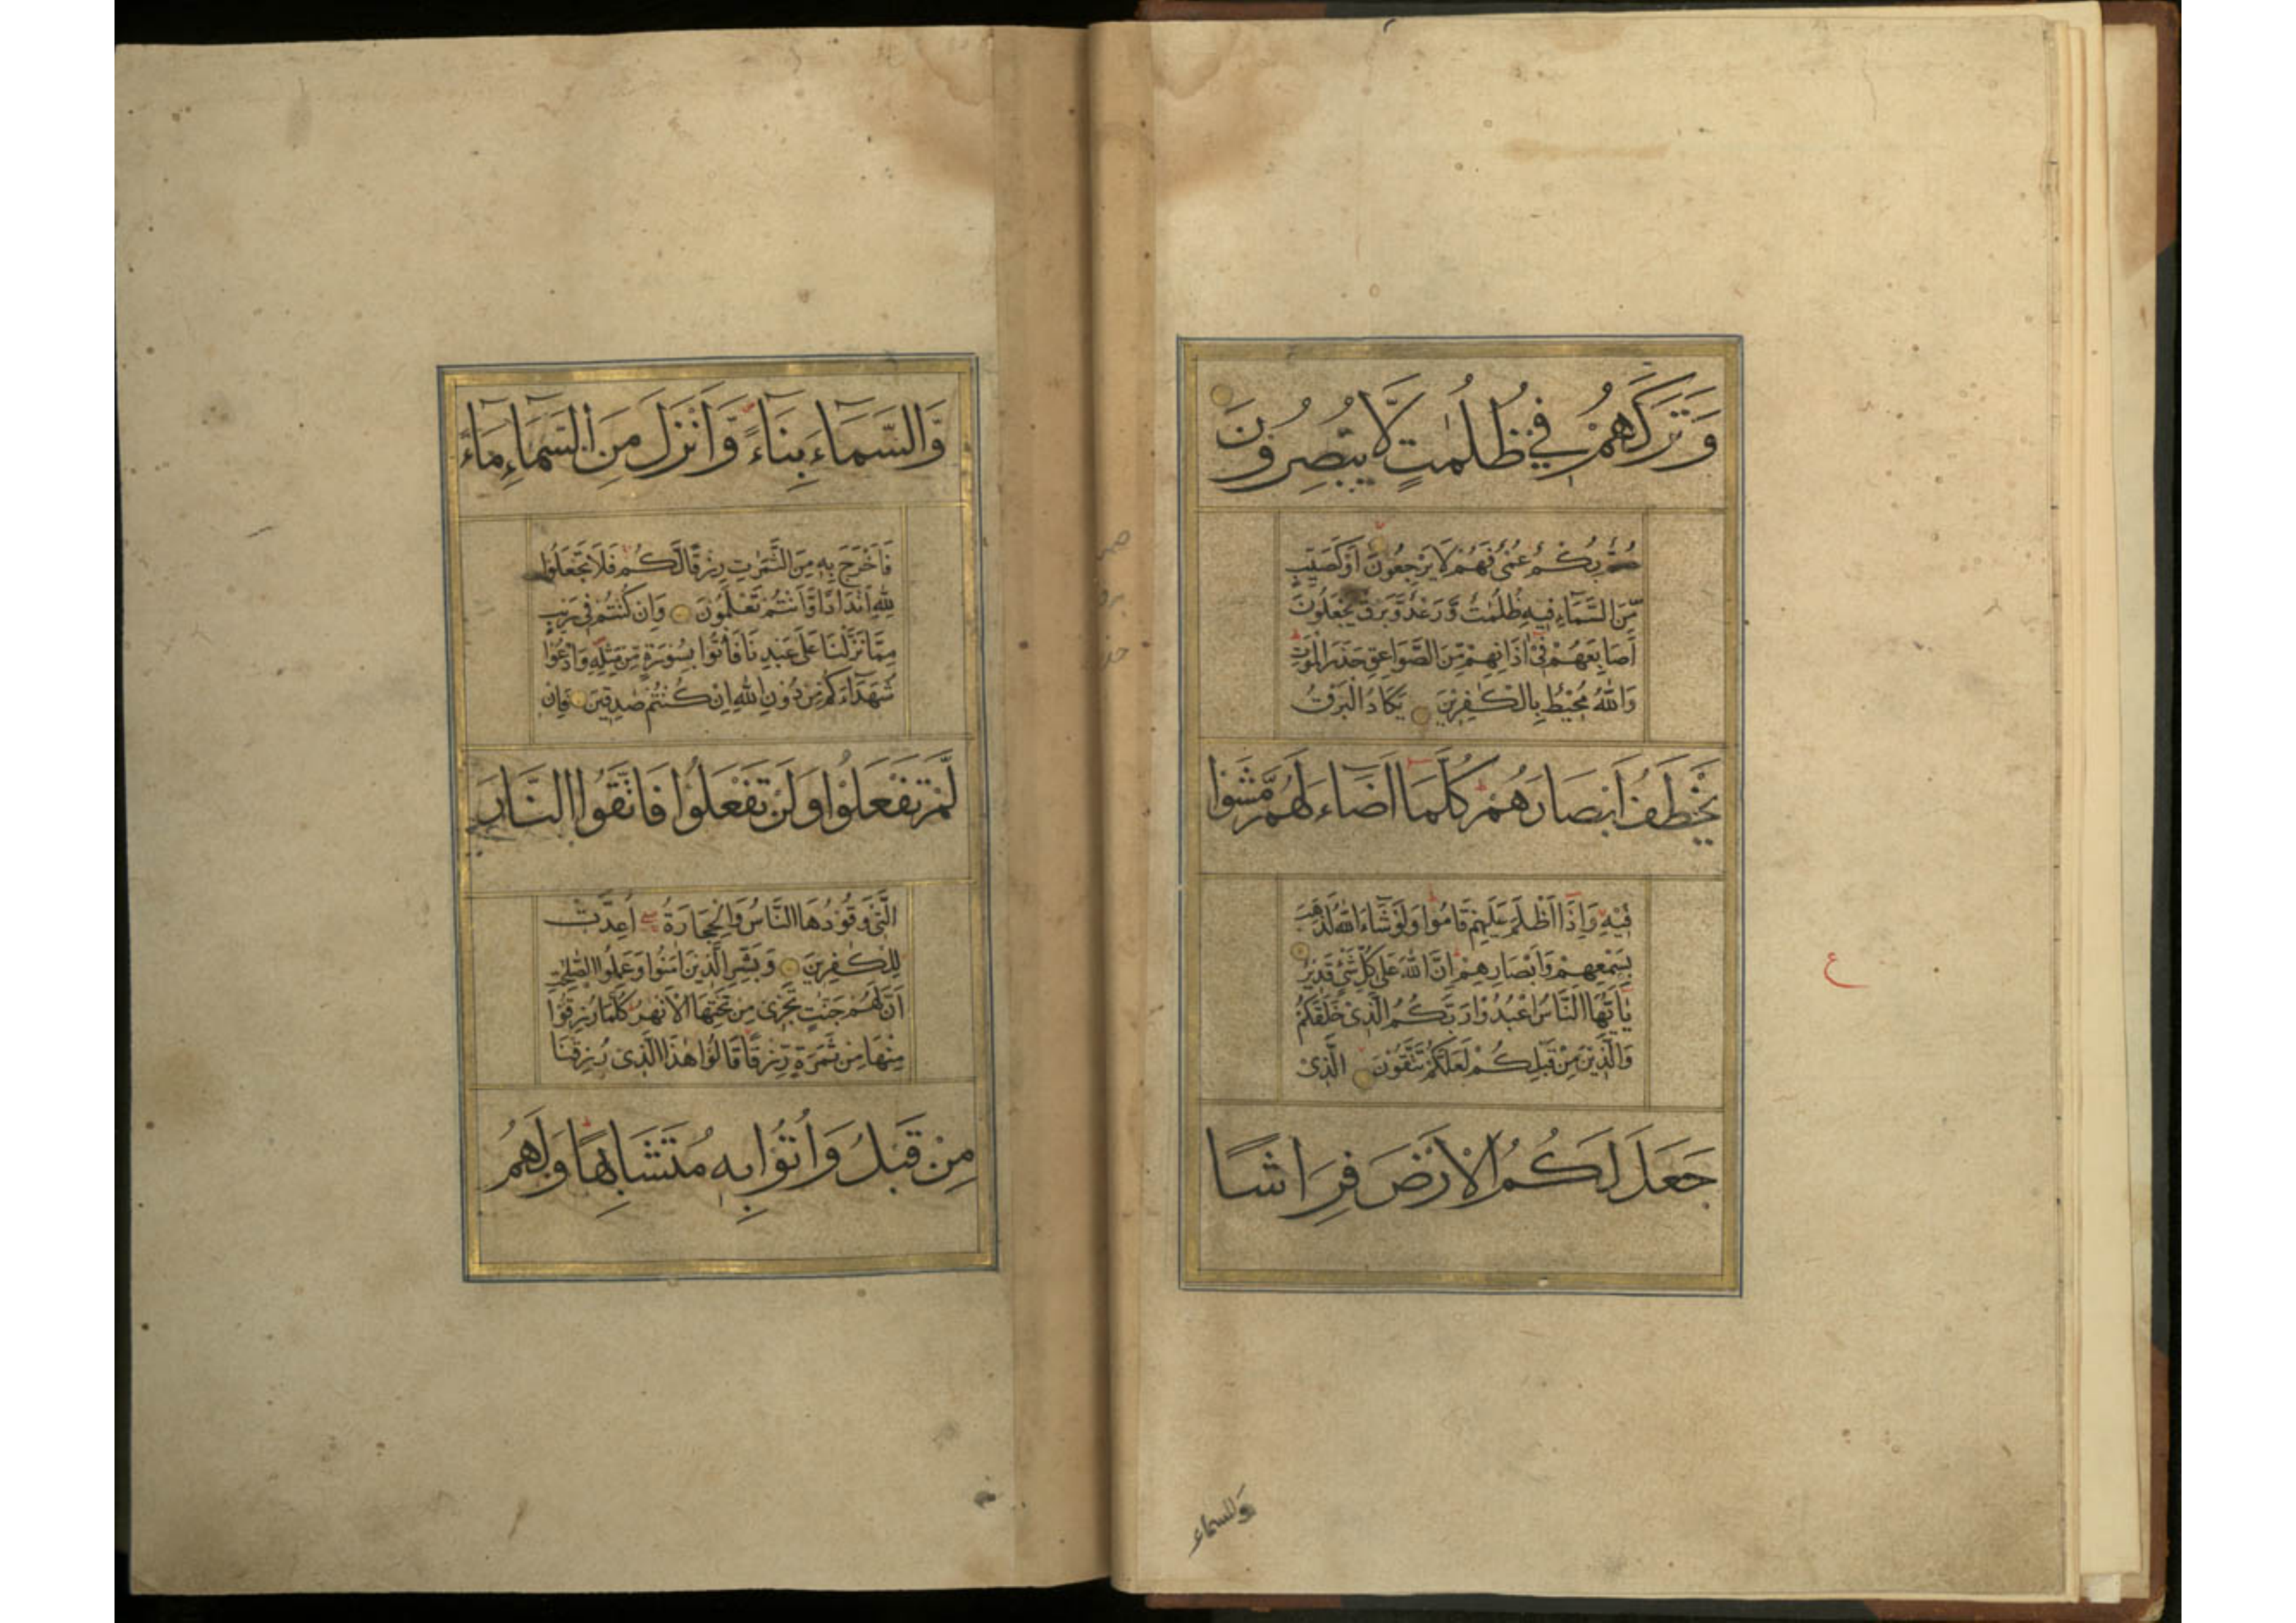 وَتَرَكَهُمْ فِي ظُلُمٰتٍ لَّا يُبْصِرُونَ
صُمٌّ بُكْمٌ عُمْيٌ فَهُمْ لَا يَرْجِعُونَ اَوْ كَصَيِّبٍ
مِّنَ السَّمَآءِ فِيهِ ظُلُمٰتٌ وَّرَعْدٌ وَّبَرْقٌ يَجْعَلُونَ
اَصَابِعَهُمْ فِيْٓ اٰذَانِهِمْ مِّنَ الصَّوَاعِقِ حَذَرَ الْمَوْتِ
وَاللّٰهُ مُحِيْطٌ بِالْكٰفِرِيْنَ يَكَادُ الْبَرْقُ
يَخْطَفُ اَبْصَارَهُمْ كُلَّمَا اَضَآءَ لَهُمْ مَّشَوْا
فِيْهِ وَاِذَا اَظْلَمَ عَلَيْهِمْ قَامُوْا وَلَوْ شَآءَ اللّٰهُ لَذَهَبَ
بِسَمْعِهِمْ وَاَبْصَارِهِمْ اِنَّ اللّٰهَ عَلٰى كُلِّ شَيْءٍ قَدِيْرٌ
يٰاَيُّهَا النَّاسُ اعْبُدُوْا رَبَّكُمُ الَّذِيْ خَلَقَكُمْ
وَالَّذِيْنَ مِنْ قَبْلِكُمْ لَعَلَّكُمْ تَتَّقُوْنَ الَّذِيْ
جَعَلَ لَكُمُ الْاَرْضَ فِرَاشًا
والسماء
ع
وَّالسَّمَآءَ بِنَآءً وَّاَنْزَلَ مِنَ السَّمَآءِ مَآءً
فَاَخْرَجَ بِهٖ مِنَ الثَّمَرٰتِ رِزْقًا لَّكُمْ فَلَا تَجْعَلُوْا
لِلّٰهِ اَنْدَادًا وَّاَنْتُمْ تَعْلَمُوْنَ وَاِنْ كُنْتُمْ فِيْ رَيْبٍ
مِمَّا نَزَّلْنَا عَلٰى عَبْدِنَا فَأْتُوْا بِسُوْرَةٍ مِّنْ مِّثْلِهٖ وَادْعُوْا
شُهَدَآءَكُمْ مِنْ دُوْنِ اللّٰهِ اِنْ كُنْتُمْ صٰدِقِيْنَ فَاِنْ
لَّمْ تَفْعَلُوْا وَلَنْ تَفْعَلُوْا فَاتَّقُوا النَّارَ
الَّتِيْ وَقُوْدُهَا النَّاسُ وَالْحِجَارَةُ اُعِدَّتْ
لِلْكٰفِرِيْنَ وَبَشِّرِ الَّذِيْنَ اٰمَنُوْا وَعَمِلُوا الصّٰلِحٰتِ
اَنَّ لَهُمْ جَنّٰتٍ تَجْرِيْ مِنْ تَحْتِهَا الْاَنْهٰرُ كُلَّمَا رُزِقُوْا
مِنْهَا مِنْ ثَمَرَةٍ رِّزْقًا قَالُوْا هٰذَا الَّذِيْ رُزِقْنَا
مِنْ قَبْلُ وَاُتُوْا بِهٖ مُتَشَابِهًا وَلَهُمْ